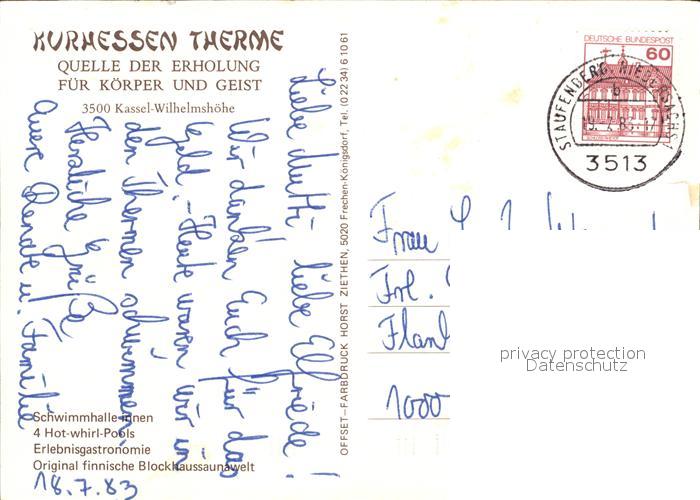 KURHESSEN THERME
QUELLE DER ERHOLUNG
FÜR KÖRPER UND GEIST
3500 Kassel-Wilhelmshöhe
Liebe Mutti, liebe Elfriede!
Wir danken Euch für das
Geld. - Heute waren wir in
den Thermen schwimmen.
Herzliche Grüße
Eure Renate u. Familie
Schwimmhalle-innen
4 Hot-whirl-Pools
Erlebnisgastronomie
Original finnische Blockhaussaunawelt
18.7.83
OFFSET-FARBDRUCK HORST ZIETHEN, 5020 Frechen-Königsdorf, Tel. (0 22 34) 6 10 61
DEUTSCHE BUNDESPOST
60
STAUFENBERG, NIEDERSACHS
b
3513
Frau
Frl.
1000
privacy protection
Datenschutz